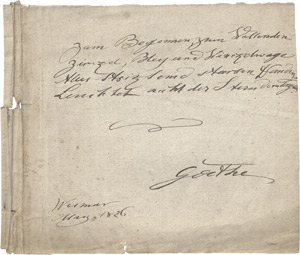 Zum Beginnen, zum Vollenden
Zirckel, Bley und Winckelwage
Alles stockt und starrt in Händen
Leuchtet nicht der Stern dem Tage.
Goethe
Weimar
März 1826